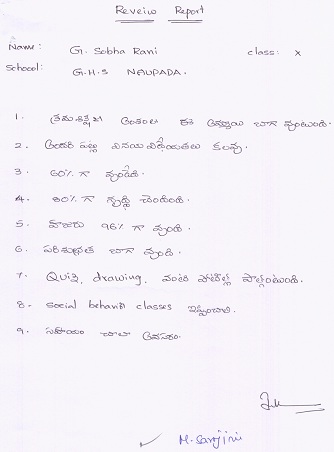 Reveiw Report
Name: G. Sobha Rani class: X
Schoool: G.H.S NAUPADA.
1. క్రమశిక్షణ అంశంలో ఈ అమ్మాయి బాగా వుంటుంది.
2. అందరి పట్ల వినయవిధేయతలు కలవు.
3. 60% గా వుండేది.
4. 80% గా వృద్ధి చెందింది.
5. హాజరు 96% గా వుంది.
6. పరిశుభ్రత బాగా వుంది.
7. Quiz, drawing, వంటి పోటీల్లో పాల్గొంటుంది.
8. social behavior classes ఇప్పించాలి.
9. సహాయం చాలా అవసరం.
M. Sarojini